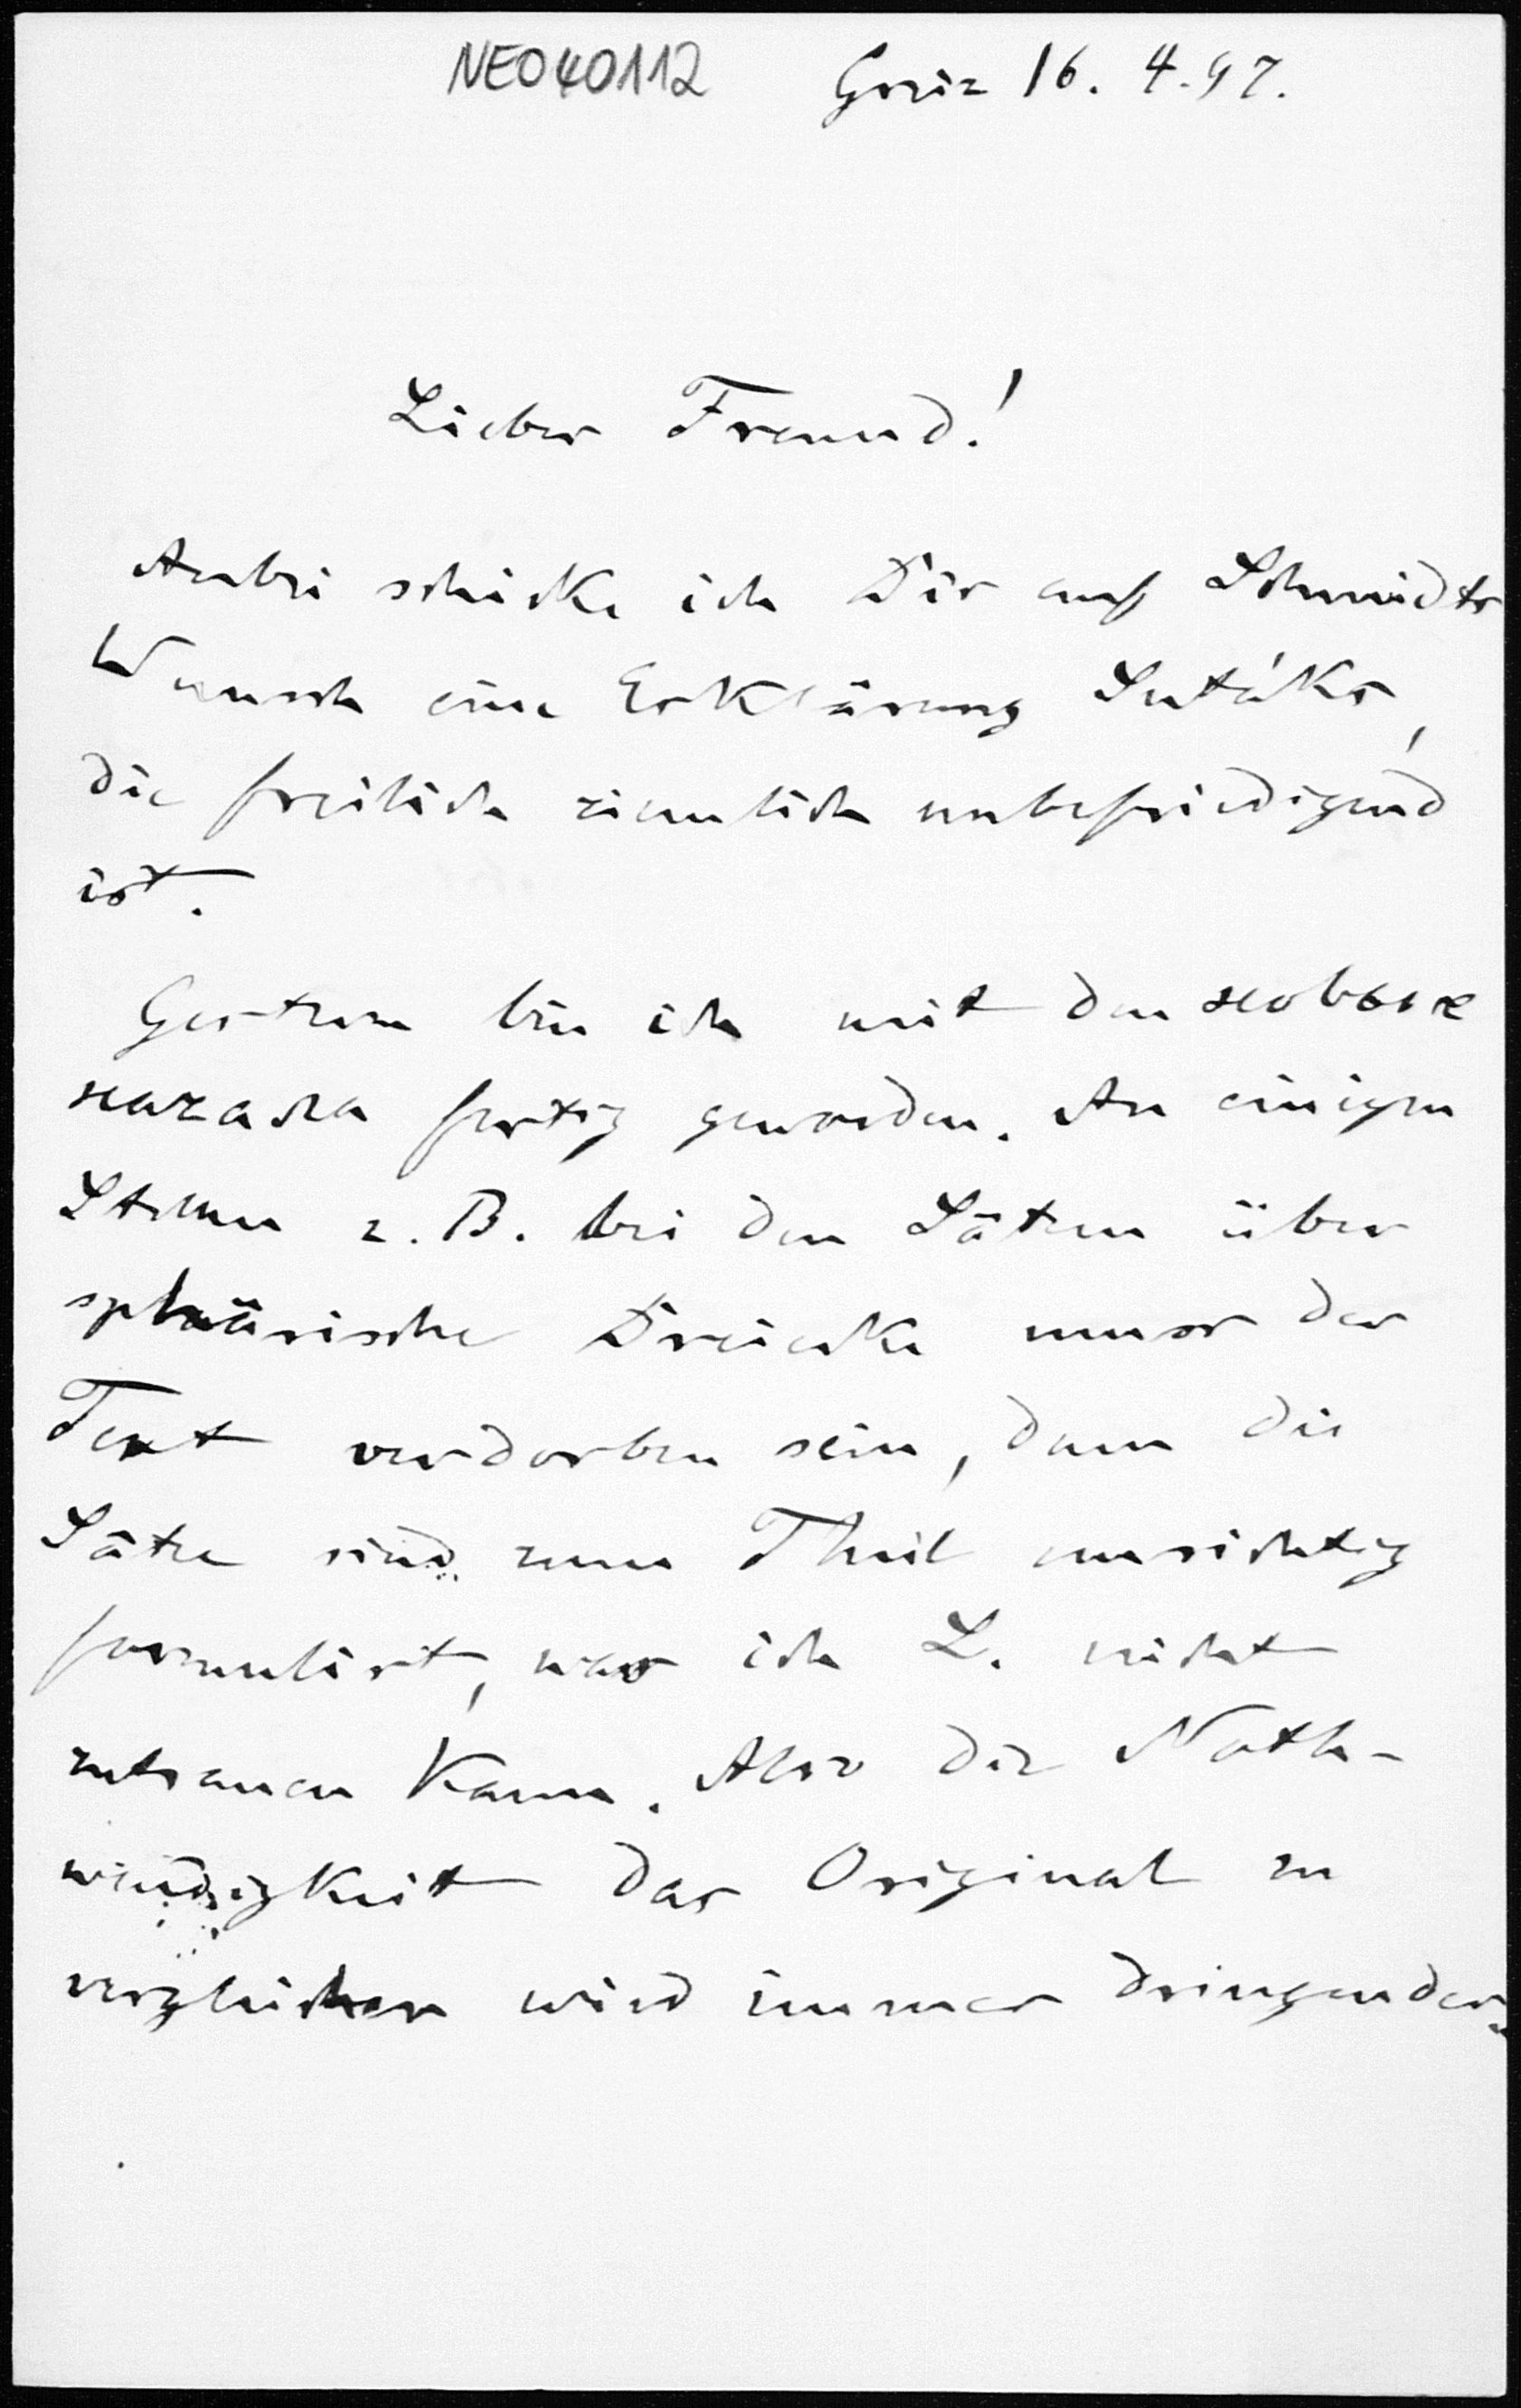 NE040112 Greiz 16. 4. 97.
Lieber Freund!
Anbei schicke ich Dir auf Schmidts
Wunsch eine Erklärung Suták's,
die freilich ziemlich unbefriedigend
ist.
Gestern bin ich mit den новыя
начала fertig geworden. An einigen
Stellen z. B. bei den Sätzen über
sphärische Dreiecke muss der
Text verdorben sein, denn die
Sätze sind zum Theil unrichtig
formulirt, was ich L. nicht
zutrauen kann. Also die Noth-
wendigkeit das Original zu
vergleichen wird immer dringender.